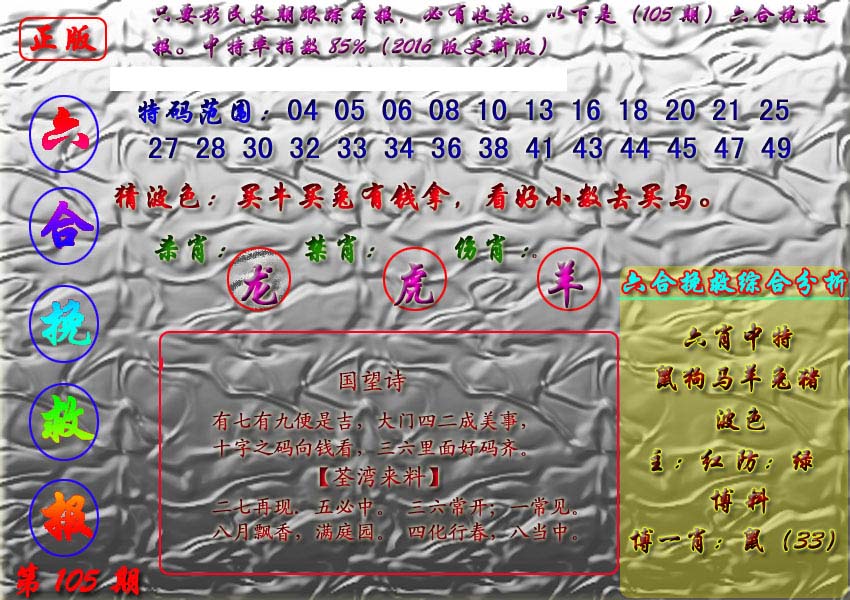 正版
只要彩民长期跟踪本报，必有收获。以下是（105期）六合挽救
报。中特率指数85%（2016版更新版）
六
合
挽
救
报
第105期
特码范围：04 05 06 08 10 13 16 18 20 21 25
27 28 30 32 33 34 36 38 41 43 44 45 47 49
猜波色：买牛买兔有钱拿，看好小数去买马。
杀肖：龙 禁肖：虎 伤肖：羊
国望诗
有七有九便是吉，大门四二成美事，
十字之码向钱看，三六里面好码齐。
【荃湾来料】
二七再现．五必中。 三六常开；一常见。
八月飘香，满庭园。 四化行春，八当中。
六合挽救综合分析
六肖中特
鼠狗马羊兔猪
波色
主：红防：绿
博料
博一肖：鼠（33）